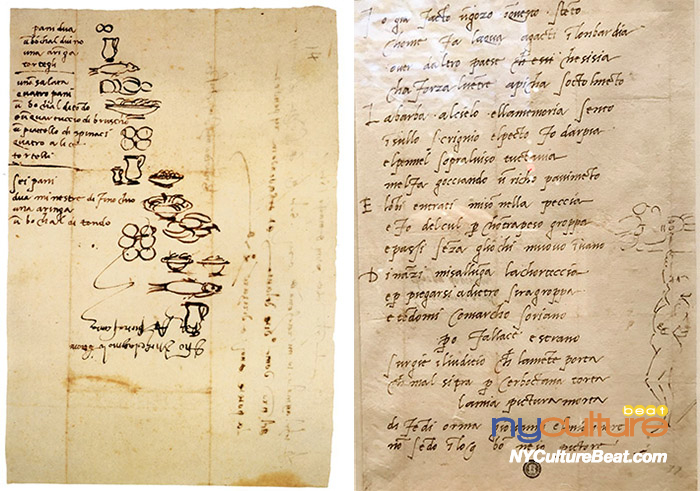 pani dua
u bochal di vino
una aringa
tortegli
una salata
quatro pani
u bochal di tōdo
e u quartuccio di bruscho
u piattello di spinaci
quatro alice
tortelli
sei pani
dua minestre di finochio
una aringa
u bochal di tondo
I o gia facto u gozo i questo steto
chome fa laqua agacti i lombardia
over daltro paese che si sia
cha forza luetre apicha socto lmeto
L a barba alcielo ella memoria sento
i sullo scrignio elpecto fo darpia
elpennel sopraluiso tuctavia
melfa gocciando u richo pavimeto
E lobi entrati miso nella peccia
e fo delcul p chotrapeso groppa
e passi seza gliochi muovo i uano
D inazi misalluga lachoraccia
e p piegarsi adietro siragroppa
e tedomi comarcho soriano
po fallace e strano
surgie iliudicio ch lamete porta
ch mal sitra p cerboctana torta
lamia pictura morta
di fedi orma
no sedo i log bo ne io pictore
beat
nyculture
NYCultureBeat.com